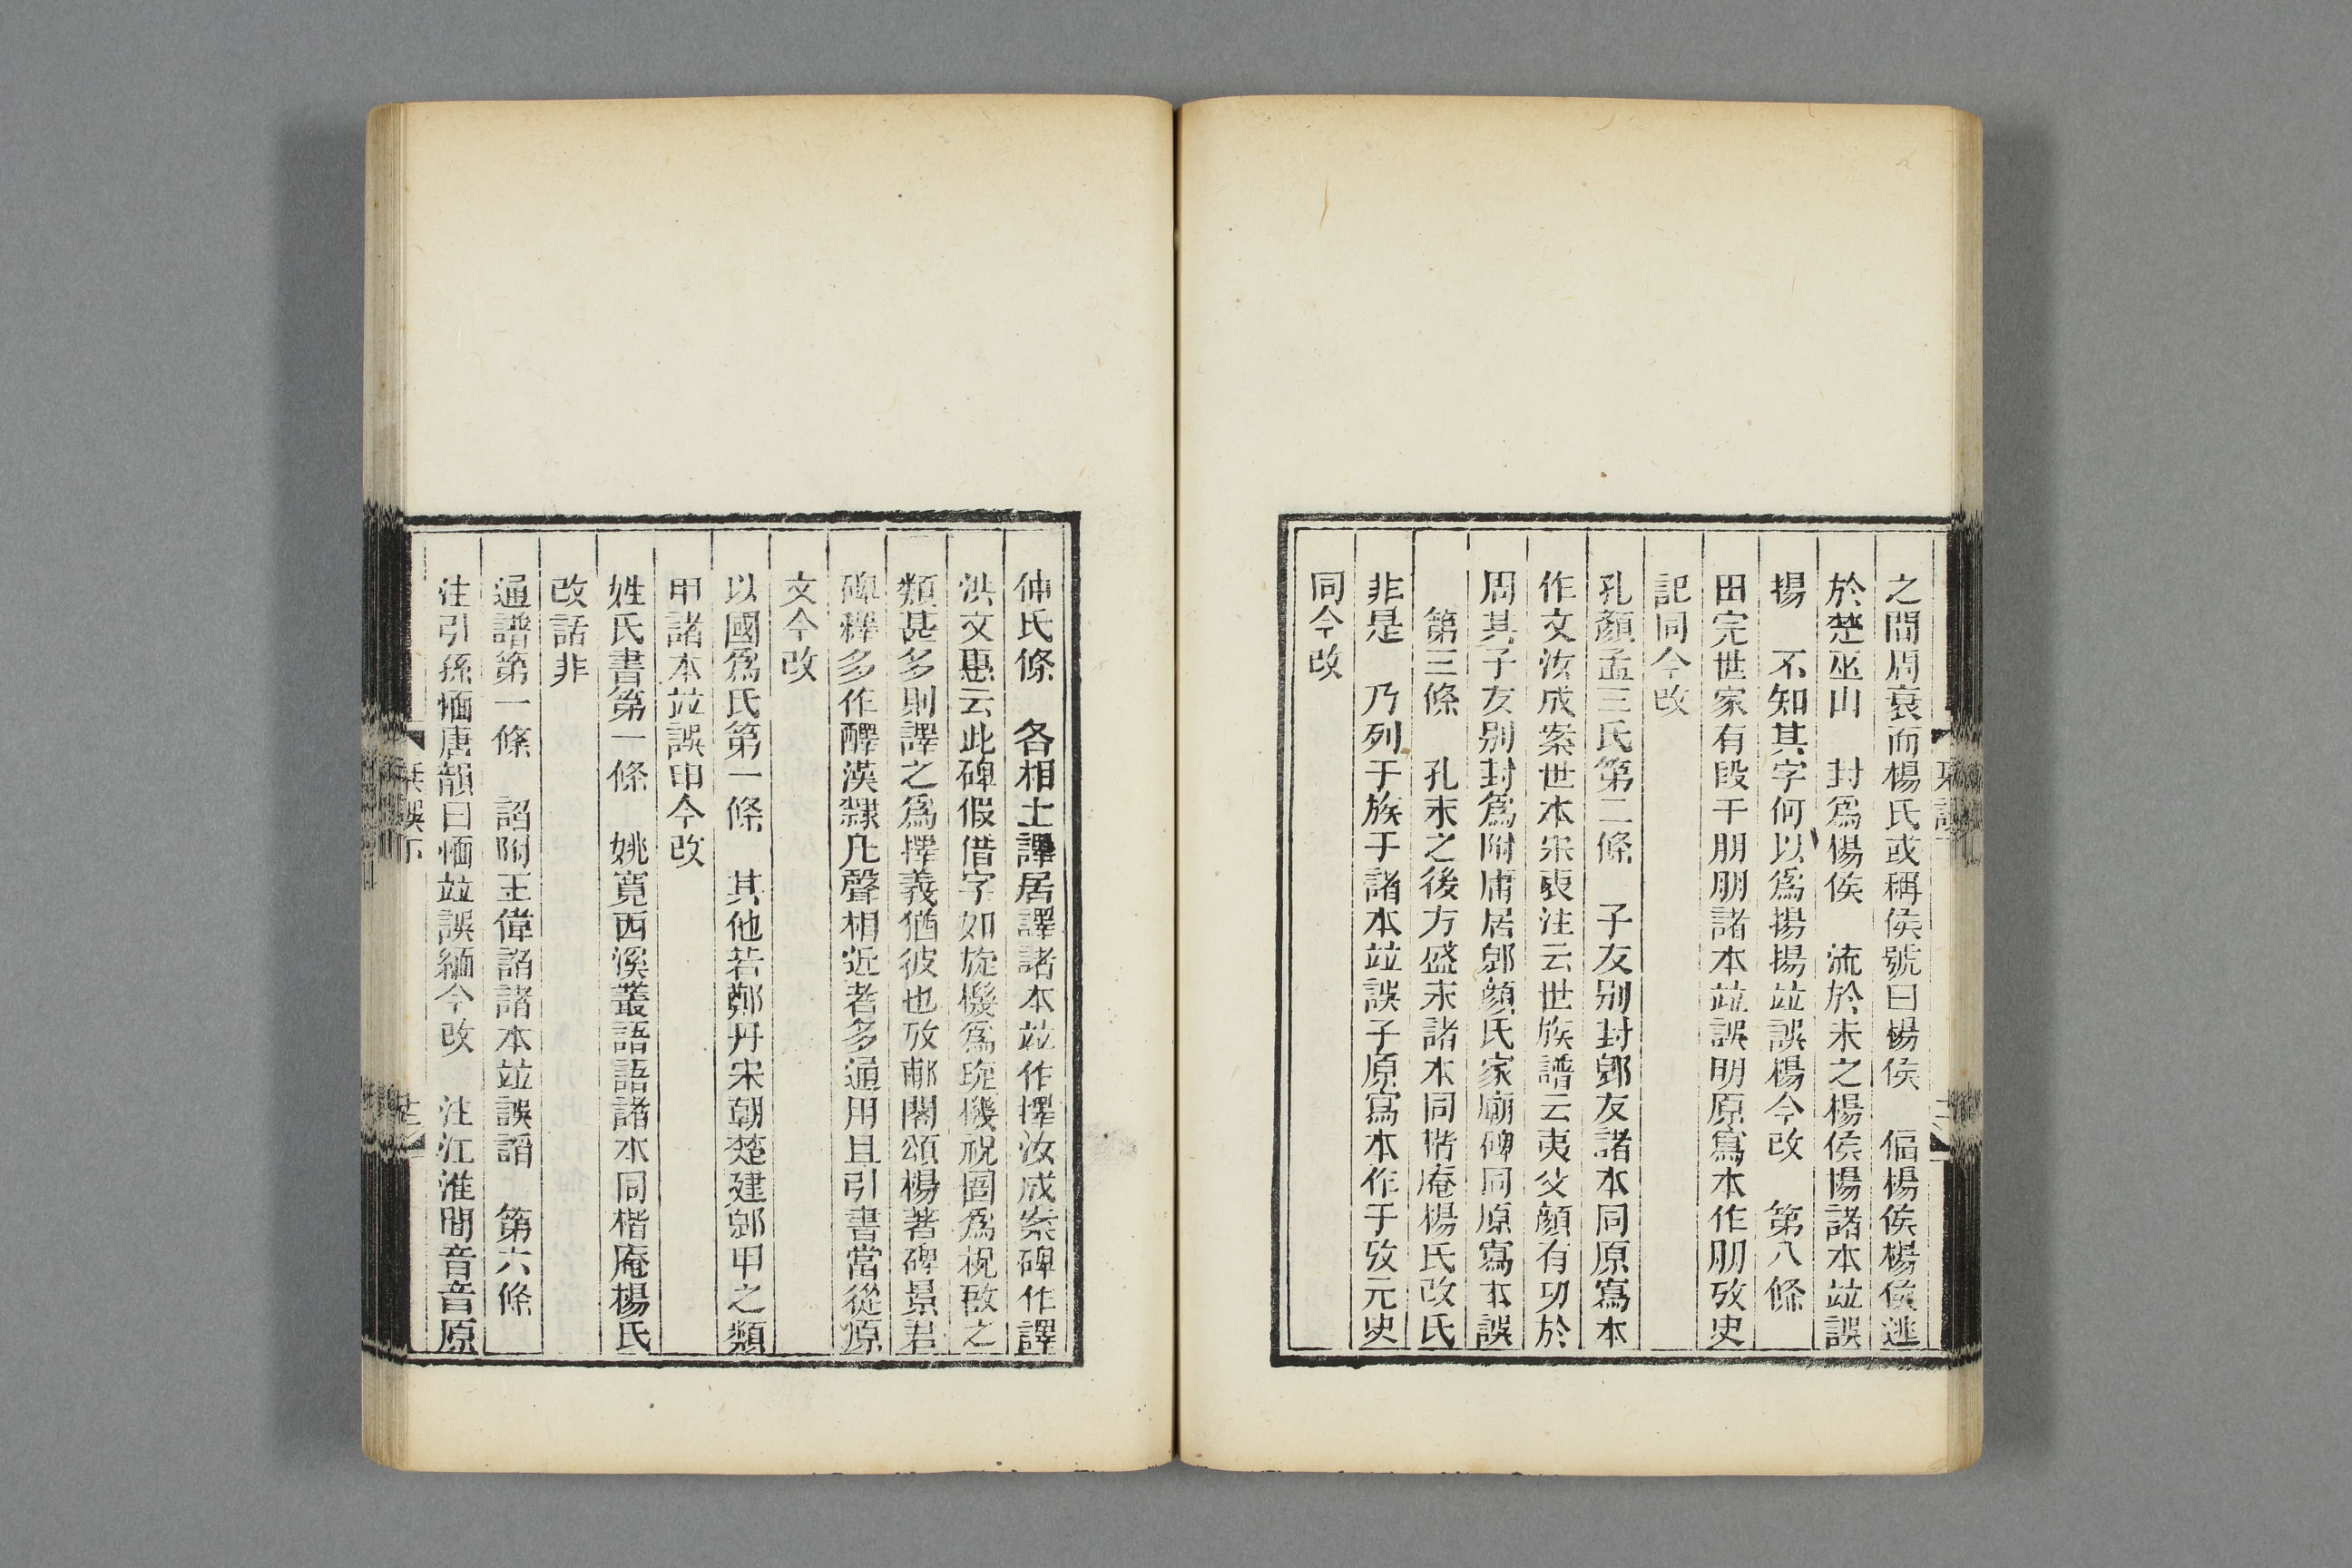 之間周衰而楊氏或稱侯號曰楊侯　偪楊侯楊侯逃
於楚巫山　封爲楊侯　流於未之楊侯揚諸本竝誤
揚　不知其字何以爲揚揚竝誤楊今改　第八條
田完世家有段干朋朋諸本竝誤明原寫本作朋攷史
記同今改
孔顏孟三氏第二條　子友别封郳友諸本同原寫本
作文汝成案世本宋衷注云世族譜云夷父顏有功於
周其子友别封爲附庸居郳顏氏家廟碑同原寫本誤
第三條　孔末之後方盛末諸本同楷庵楊氏改氏
非是　乃列于族于諸本竝誤子原寫本作于攷元史
同今改
仲氏條　各相土譯居譯諸本竝作擇汝成案碑作譯
洪文惠云此碑假借字如旋機爲琁機祝圄爲柷敔之
類甚多則譯之爲擇義猶彼也攷郙閣頌楊著碑景君
碑釋多作醳漢隸凡聲相近者多通用且引書當從原
文今改
以國爲氏第一條　其他若鄭丹宋朝楚建郳甲之類
甲諸本竝誤申今改
姓氏書第一條　姚寬西溪叢語語諸本同楷庵楊氏
改話非
通譜第一條　諂附王偉諂諸本竝誤謟　第六條
注引孫愐唐韻曰愐竝誤緬今改　注江淮間音音原